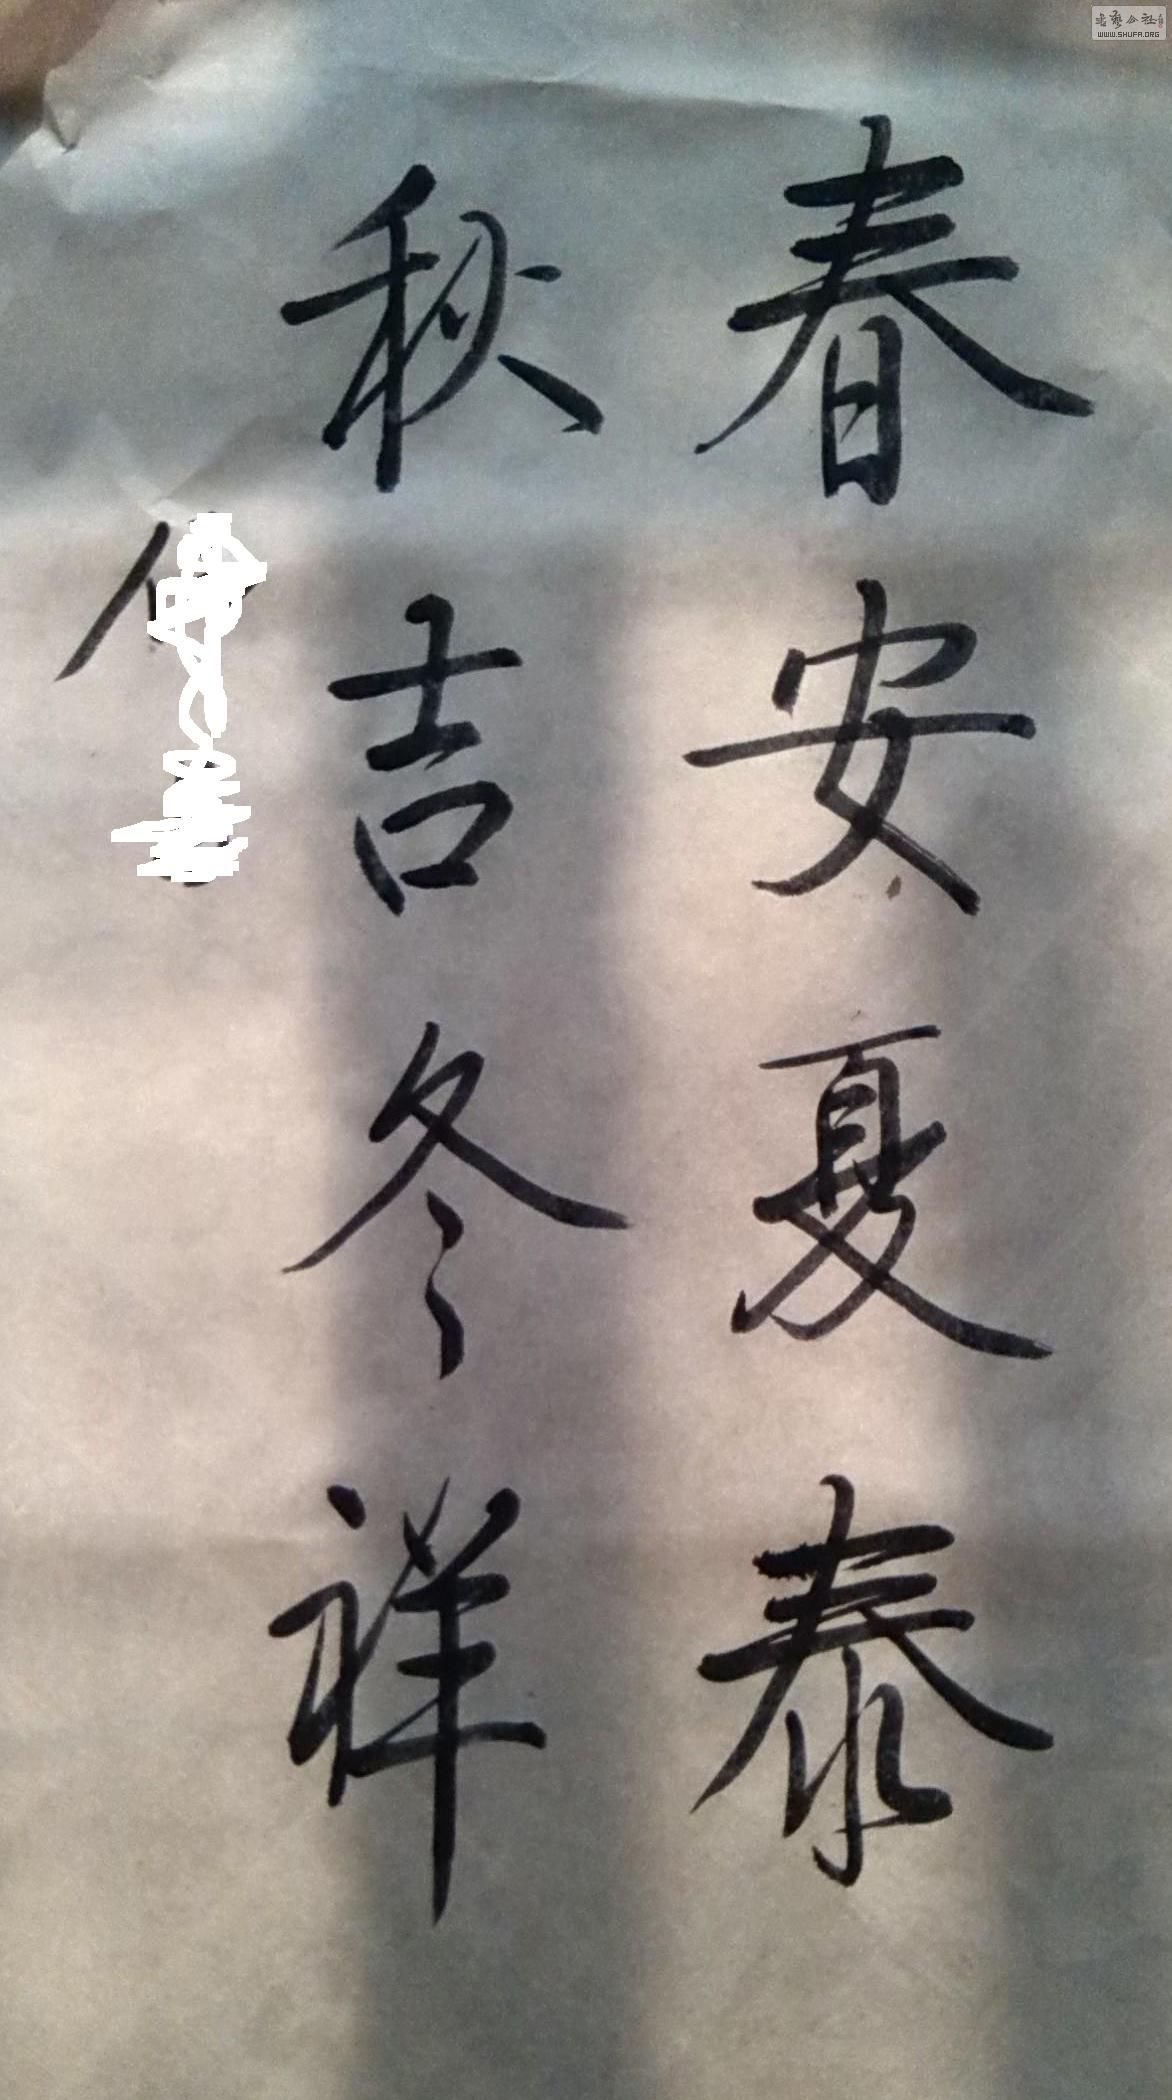 春安夏泰
秋吉冬祥
WWW.SHUFA.ORG